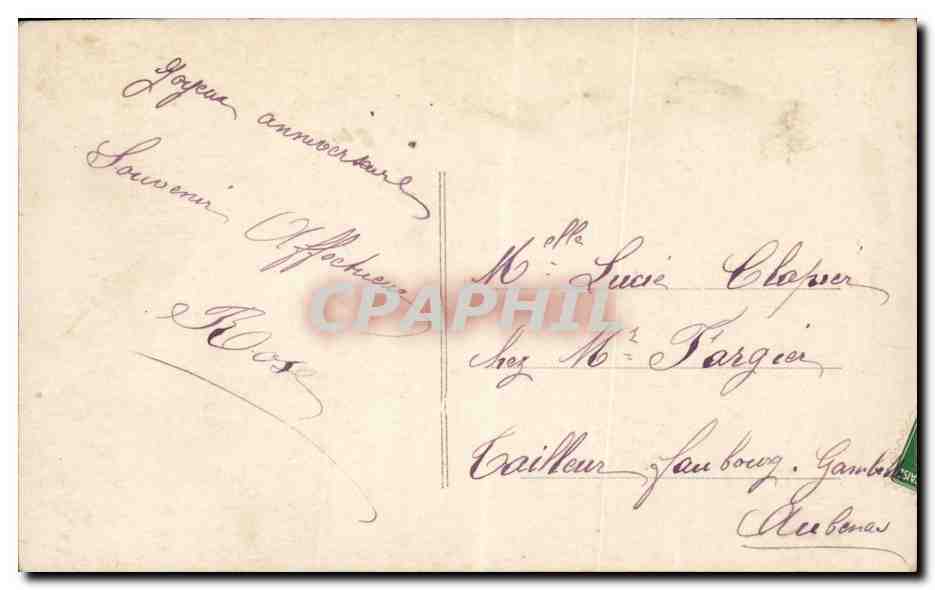 Joyeux anniversaire
Souvenir Affectueux
Rose
Melle Lucie Clapier
chez Mr Fargier
Tailleur faubourg. Gambe
Aubenas
CPAPHIL